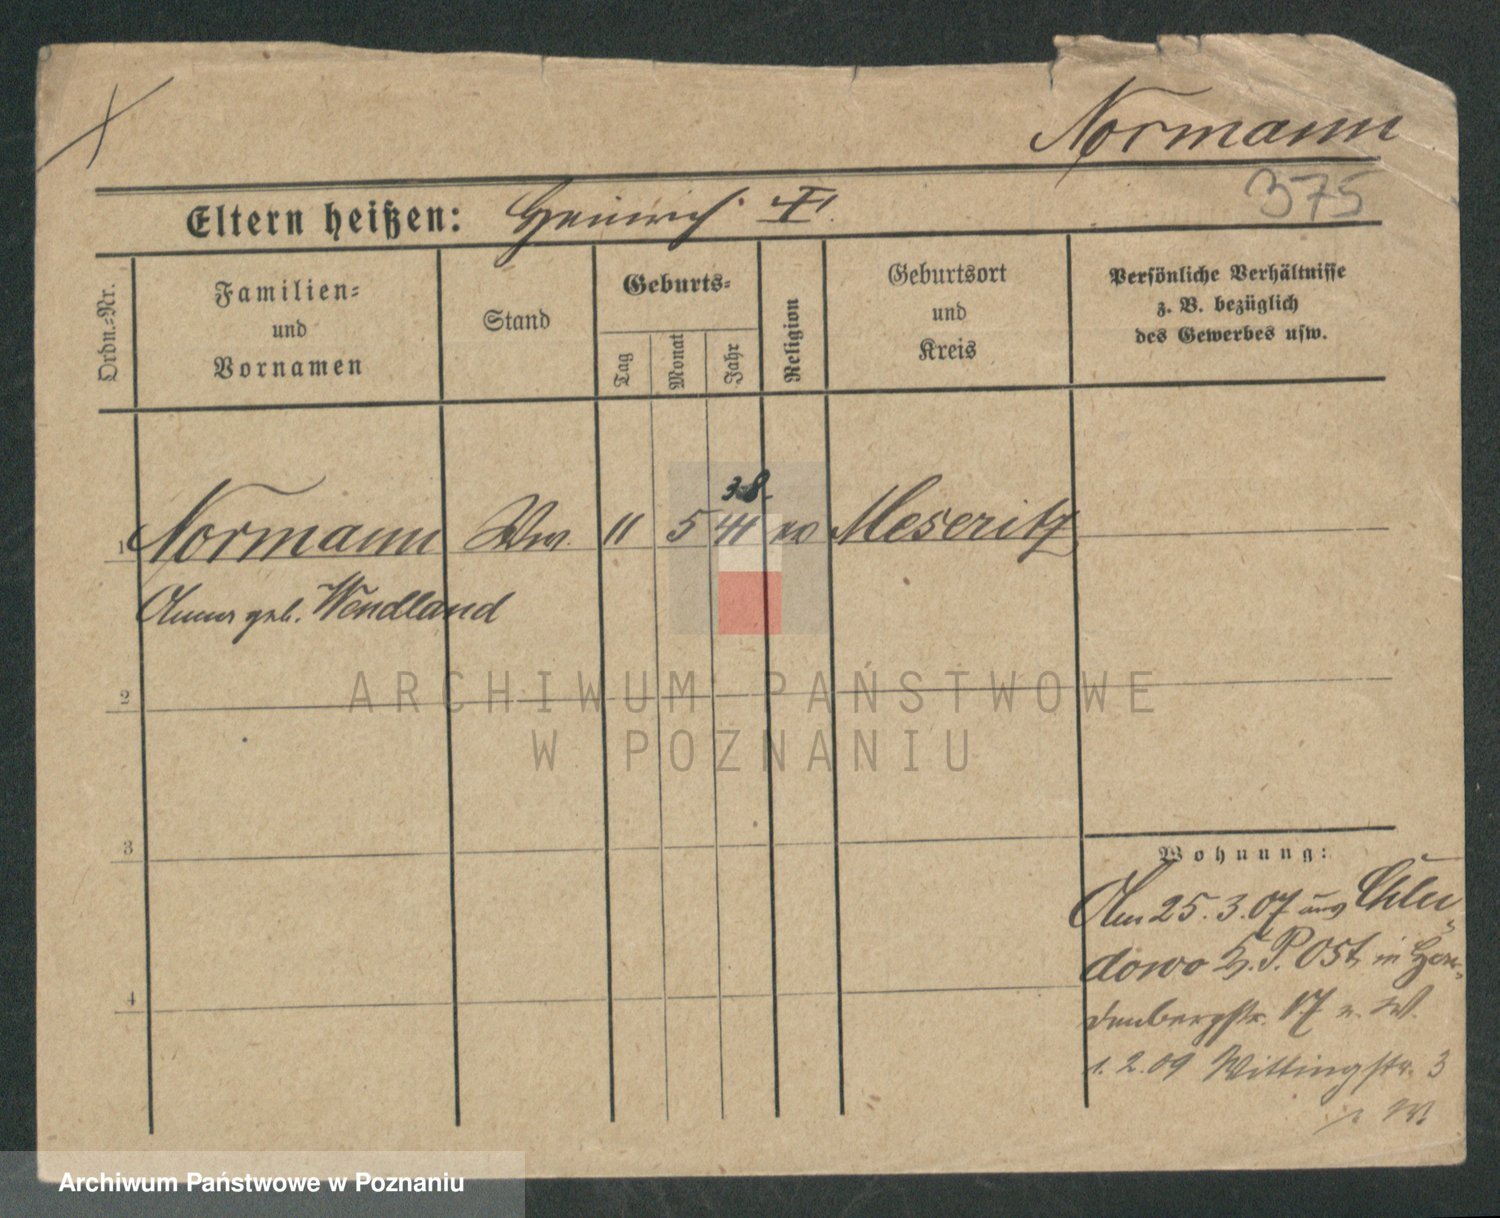 Normann
375
Eltern heißen: Heinrich †.
Ordn.-Nr.
Familien-
und
Vornamen
Stand
Geburts-
Tag
Monat
Jahr
Religion
Geburtsort
und
Kreis
Persönliche Verhältnisse
z. B. bezüglich
des Gewerbes usw.
38.
1 Normann Ww. 11 5 41 Meseritz
Anna geb. Wendland
2
3
4
Wohnung:
Am 25.3.07 aus Chlu-
dowo Kr. P. Ost in
denbergstr. 17 v. W.
1.2.09 Wittingstr. 3
ARCHIWUM PAŃSTWOWE
W POZNANIU
Archiwum Państwowe w Poznaniu